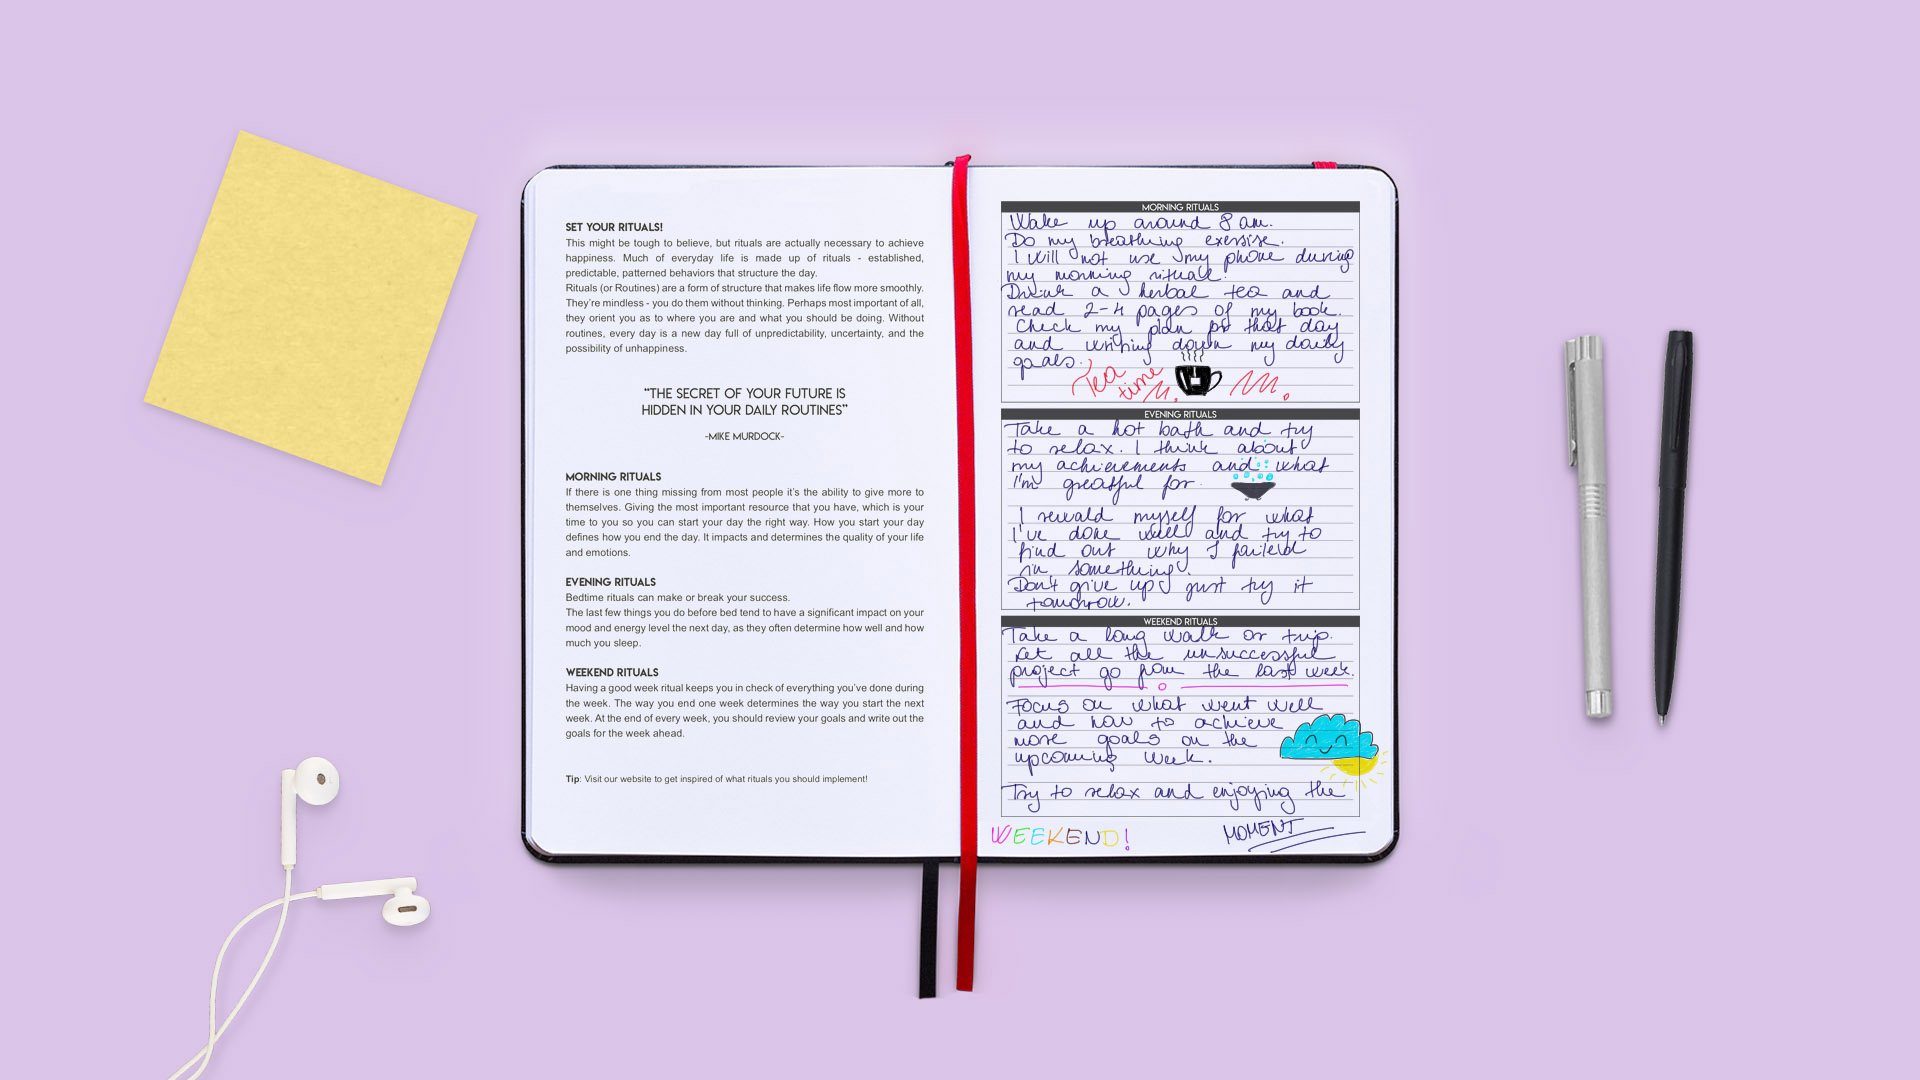 SET YOUR RITUALS!
This might be tough to believe, but rituals are actually necessary to achieve
happiness. Much of everyday life is made up of rituals - established,
predictable, patterned behaviors that structure the day.
Rituals (or Routines) are a form of structure that makes life flow more smoothly.
They're mindless - you do them without thinking. Perhaps most important of all,
they orient you as to where you are and what you should be doing. Without
routines, every day is a new day full of unpredictability, uncertainty, and the
possibility of unhappiness.
"THE SECRET OF YOUR FUTURE IS
HIDDEN IN YOUR DAILY ROUTINES"
-MIKE MURDOCK-
MORNING RITUALS
If there is one thing missing from most people it's the ability to give more to
themselves. Giving the most important resource that you have, which is your
time to you so you can start your day the right way. How you start your day
defines how you end the day. It impacts and determines the quality of your life
and emotions.
EVENING RITUALS
Bedtime rituals can make or break your success.
The last few things you do before bed tend to have a significant impact on your
mood and energy level the next day, as they often determine how well and how
much you sleep.
WEEKEND RITUALS
Having a good week ritual keeps you in check of everything you've done during
the week. The way you end one week determines the way you start the next
week. At the end of every week, you should review your goals and write out the
goals for the week ahead.
Tip: Visit our website to get inspired of what rituals you should implement!
MORNING RITUALS
Wake up around 8 am.
Do my breathing exersise.
I will not use my phone during
my morning rituals.
Drink a herbal tea and
read 2-4 pages of my book.
Check my plan for that day
and writing down my daily
goals.
Tea
time
EVENING RITUALS
Take a hot bath and try
to relax. I think about
my achievements and what
I'm greatful for.
I rewald myself for what
I've done well and try to
find out why I faileld
in something.
Don't give up just try it
tomorrow.
WEEKEND RITUALS
Take a long walk or trip.
Let all the unsuccessful
project go from the last week.
Focus on what went well
and how to achieve
more goals on the
upcoming week.
Try to relax and enjoying the
MOMENT
WEEKEND!